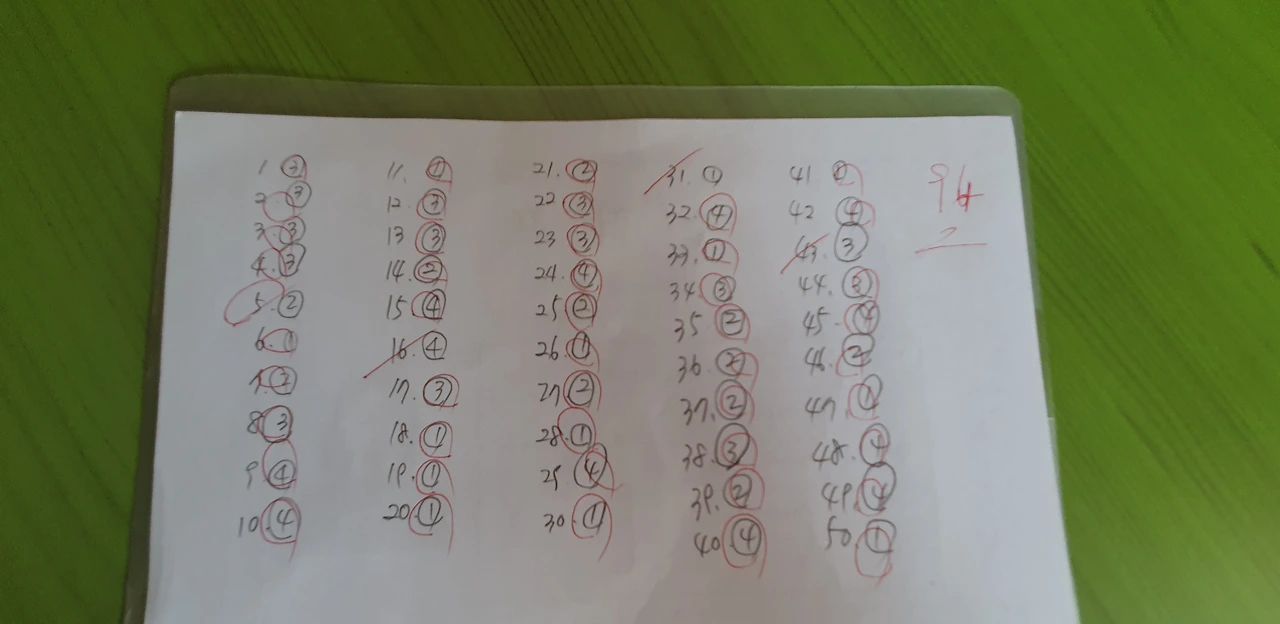 1 ③
2 ③
3. ③
4. ③
5. ②
6. ①
7. ②
8 ③
9 ④
10. ④
11. ①
12. ③
13 ③
14. ②
15 ④
16. ④
17. ③
18. ①
19. ①
20 ①
21. ②
22 ③
23 ③
24. ④
25 ②
26. ①
27 ②
28. ①
29. ④
30. ①
31. ①
32. ④
33. ①
34. ③
35 ②
36. ②
37. ②
38. ③
39. ②
40 ④
41
42 ④
43. ③
44. ③
45. ④
46. ②
47. ①
48. ④
49. ④
50. ①
94